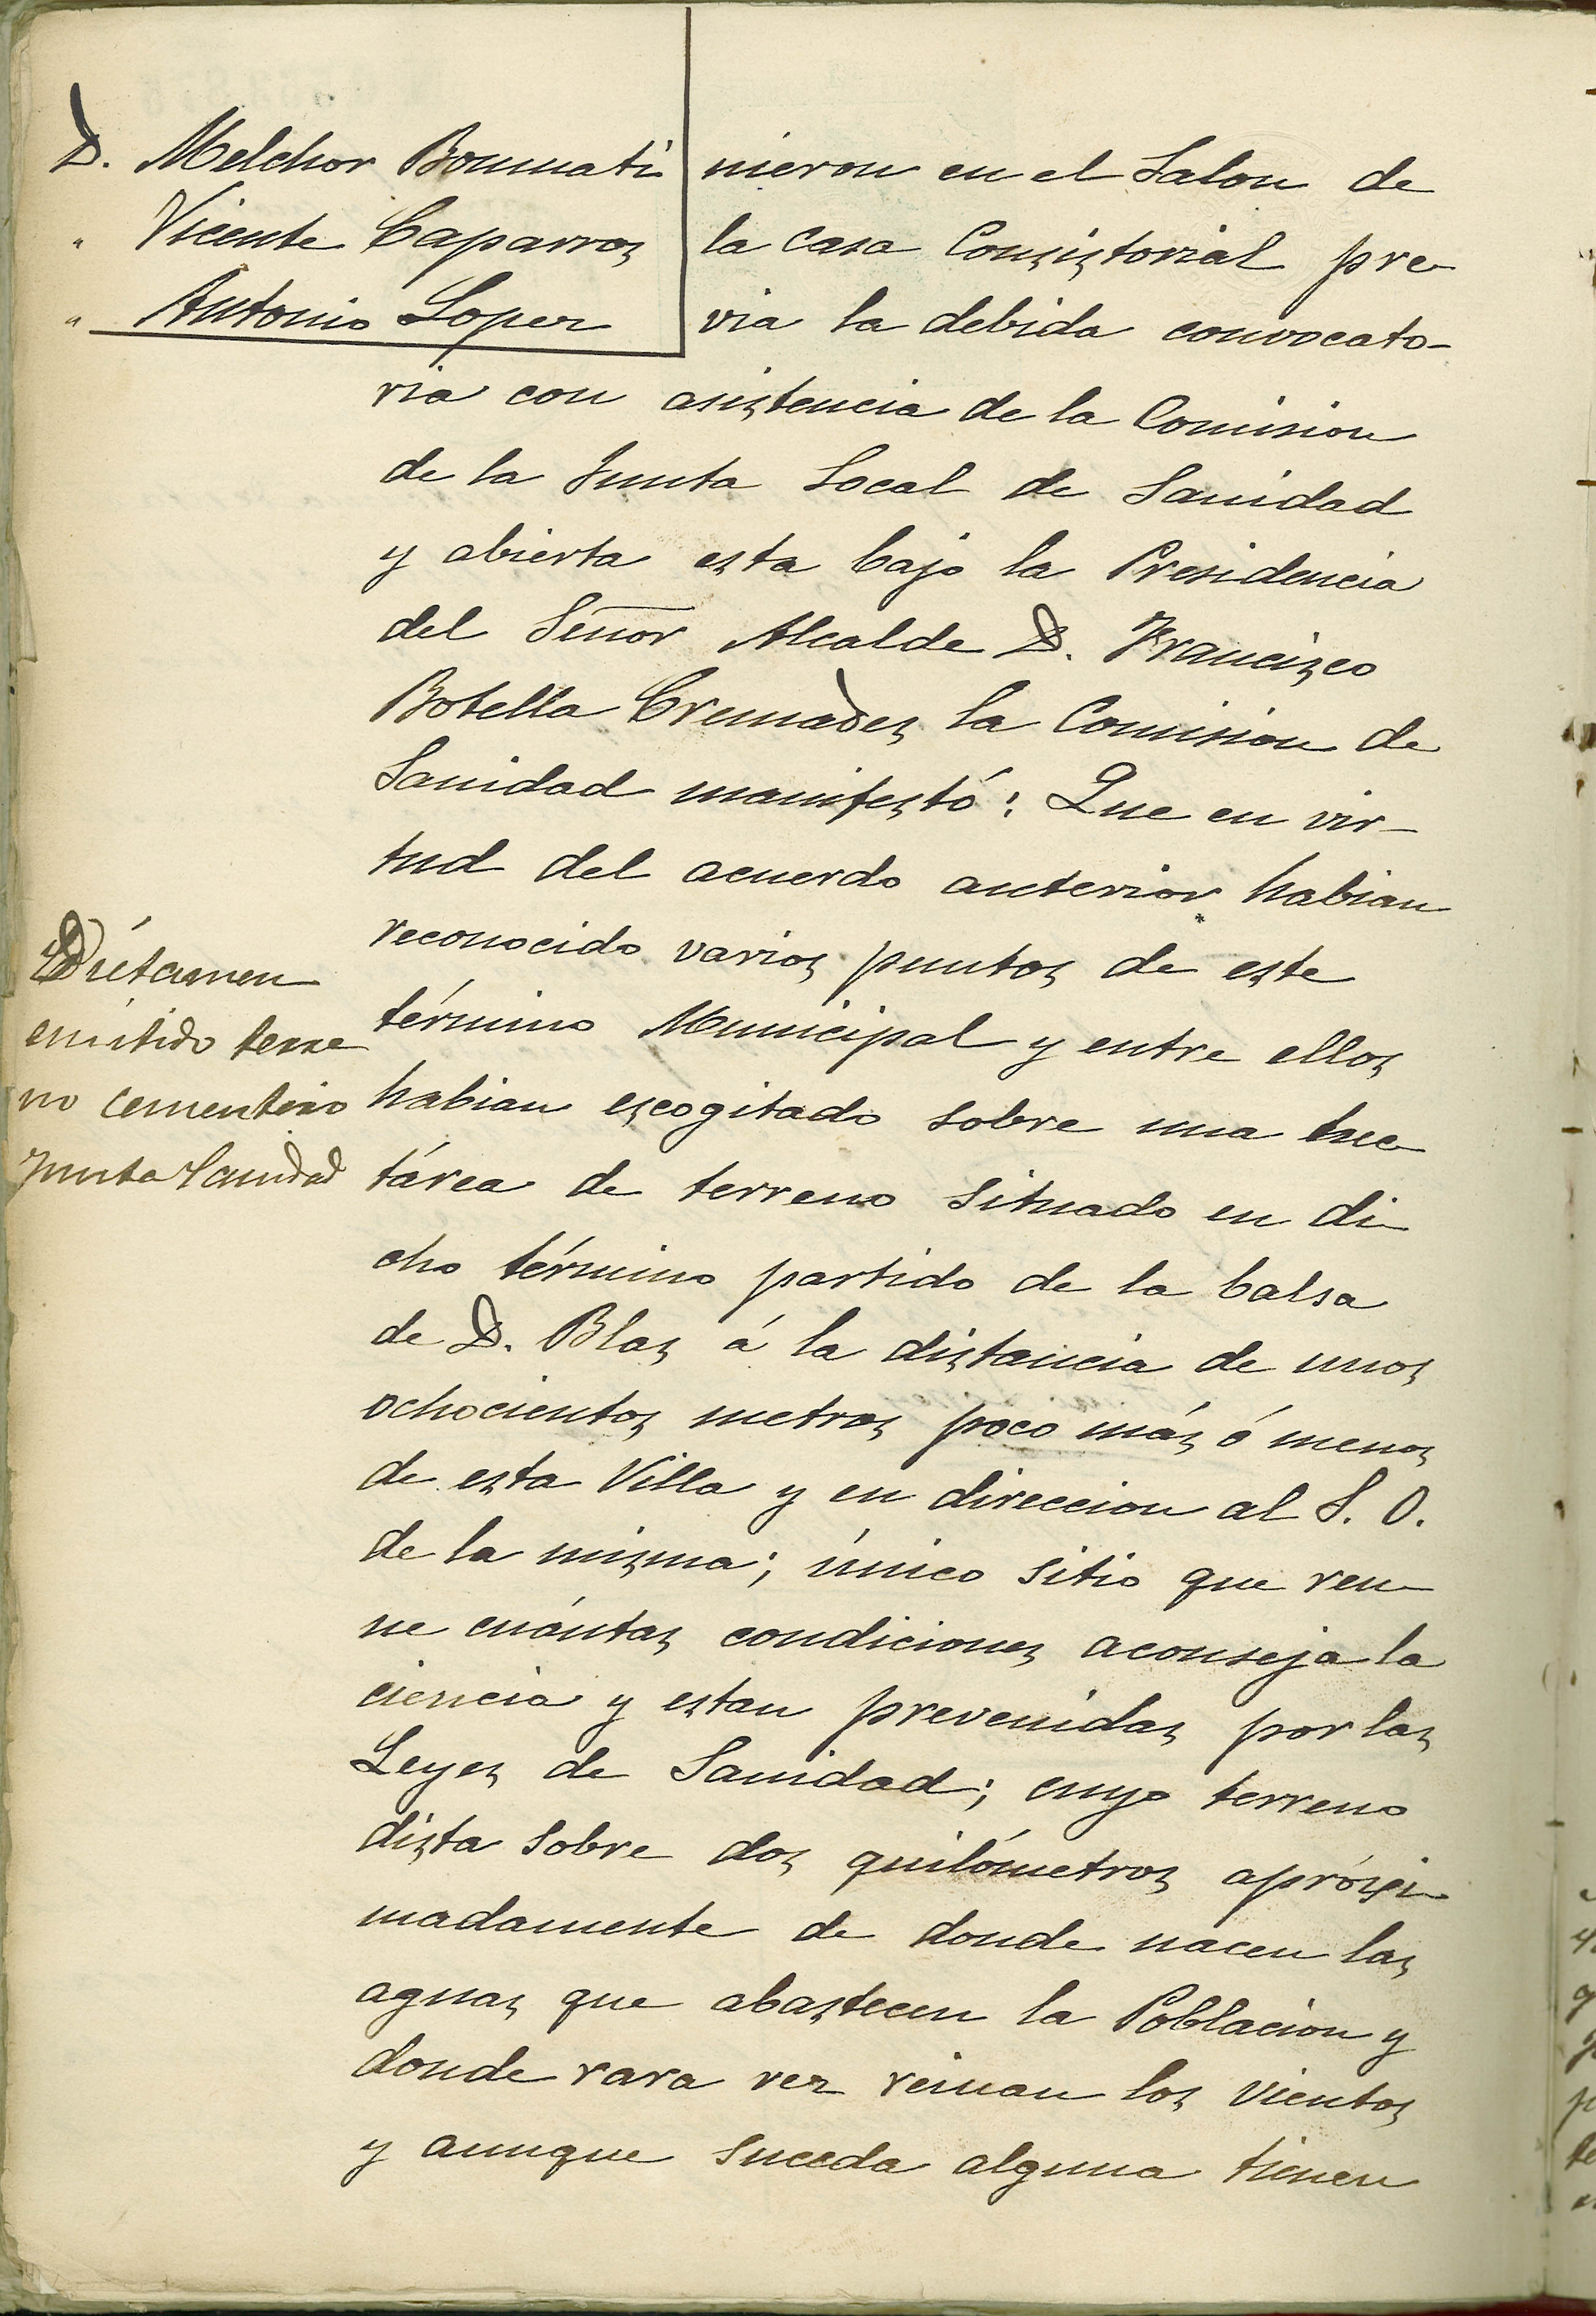 D. Melchor Bonmati
" Vicente Caparros
" Antonio Loper
nieron en el Salon de
la Casa Consistorial pre-
via la debida convocato-
ria con asistencia de la Comision
de la Junta Local de Sanidad
y abierta esta bajo la Presidencia
del Señor Alcalde D. Francisco
Botella Cremades la Comision de
Sanidad manifestó: Que en vir-
tud del acuerdo anterior habian
reconocido varios puntos de este
término Municipal y entre ellos
habian escogitado sobre una hec
tárea de terreno situado en di-
cho término partido de la balsa
de D. Blas á la distancia de unos
ochocientos metros poco más ó menos
de esta Villa y en direccion al S. O.
de la misma; único sitio que reu-
ne cuántas condiciones aconseja la
ciencia y estan prevenidas por las
Leyes de Sanidad; cuyo terreno
dista sobre dos quilómetros apróxi-
madamente de donde nacen las
aguas que abastecen la Poblacion y
donde rara vez reinan los vientos
y aunque suceda alguna tienen
Dictamen
emitido terre
no cementerio
Junta Sanidad